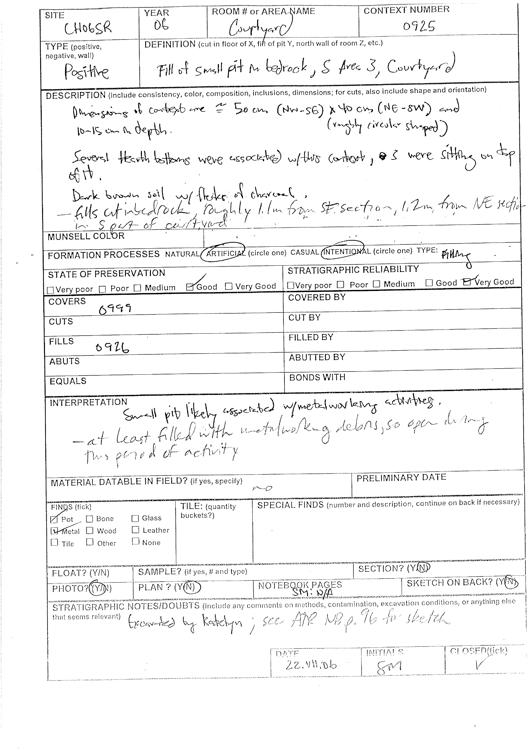 SITE CH06SR YEAR 06 ROOM # or AREA NAME Courtyard CONTEXT NUMBER 0925
TYPE (positive, negative, wall) Positive DEFINITION (cut in floor of X, fill of pit Y, north wall of room Z, etc.)
Fill of small pit in bedrock, S Area 3, Courtyard
DESCRIPTION (include consistency, color, composition, inclusions, dimensions; for cuts, also include shape and orientation)
Dimensions of context are ≅ 50cm (NW-SE) x 40cm (NE-SW) and
10-15cm in depth. (roughly circular shaped)
Several Hearth bottoms were associated w/this context, 3 were sitting on top
of it.
Dark brown soil w/flecks of charcoal.
- fills cut in bedrock, roughly 1.1m from SE section, 1.2m from NE section
in S part of courtyard
MUNSELL COLOR
FORMATION PROCESSES NATURAL ARTIFICIAL (circle one) CASUAL INTENTIONAL (circle one) TYPE: Filling
STATE OF PRESERVATION STRATIGRAPHIC RELIABILITY
Very poor Poor Medium Good Very Good Very poor Poor Medium Good Very Good
COVERS 0999 COVERED BY
CUTS CUT BY
FILLS 0926 FILLED BY
ABUTS ABUTTED BY
EQUALS BONDS WITH
INTERPRETATION
Small pit likely associated w/metalworking activities.
- at least filled with metalworking debris, so open during
this period of activity
MATERIAL DATABLE IN FIELD? (if yes, specify) no PRELIMINARY DATE
FINDS (tick) TILE: (quantity buckets?) SPECIAL FINDS (number and description, continue on back if necessary)
Pot Bone Glass
Metal Wood Leather
Tile Other None
FLOAT? (Y/N) SAMPLE? (if yes, # and type) SECTION? (Y/N)
PHOTO? (Y/N) PLAN? (Y/N) NOTEBOOK PAGES SM: N/A SKETCH ON BACK? (Y/N)
STRATIGRAPHIC NOTES/DOUBTS (Include any comments on methods, contamination, excavation conditions, or anything else
that seems relevant) Excavated by Katelyn; see NB p. 96 for sketch
DATE 22.VII.06 INITIALS SM CLOSED(tick) ✓